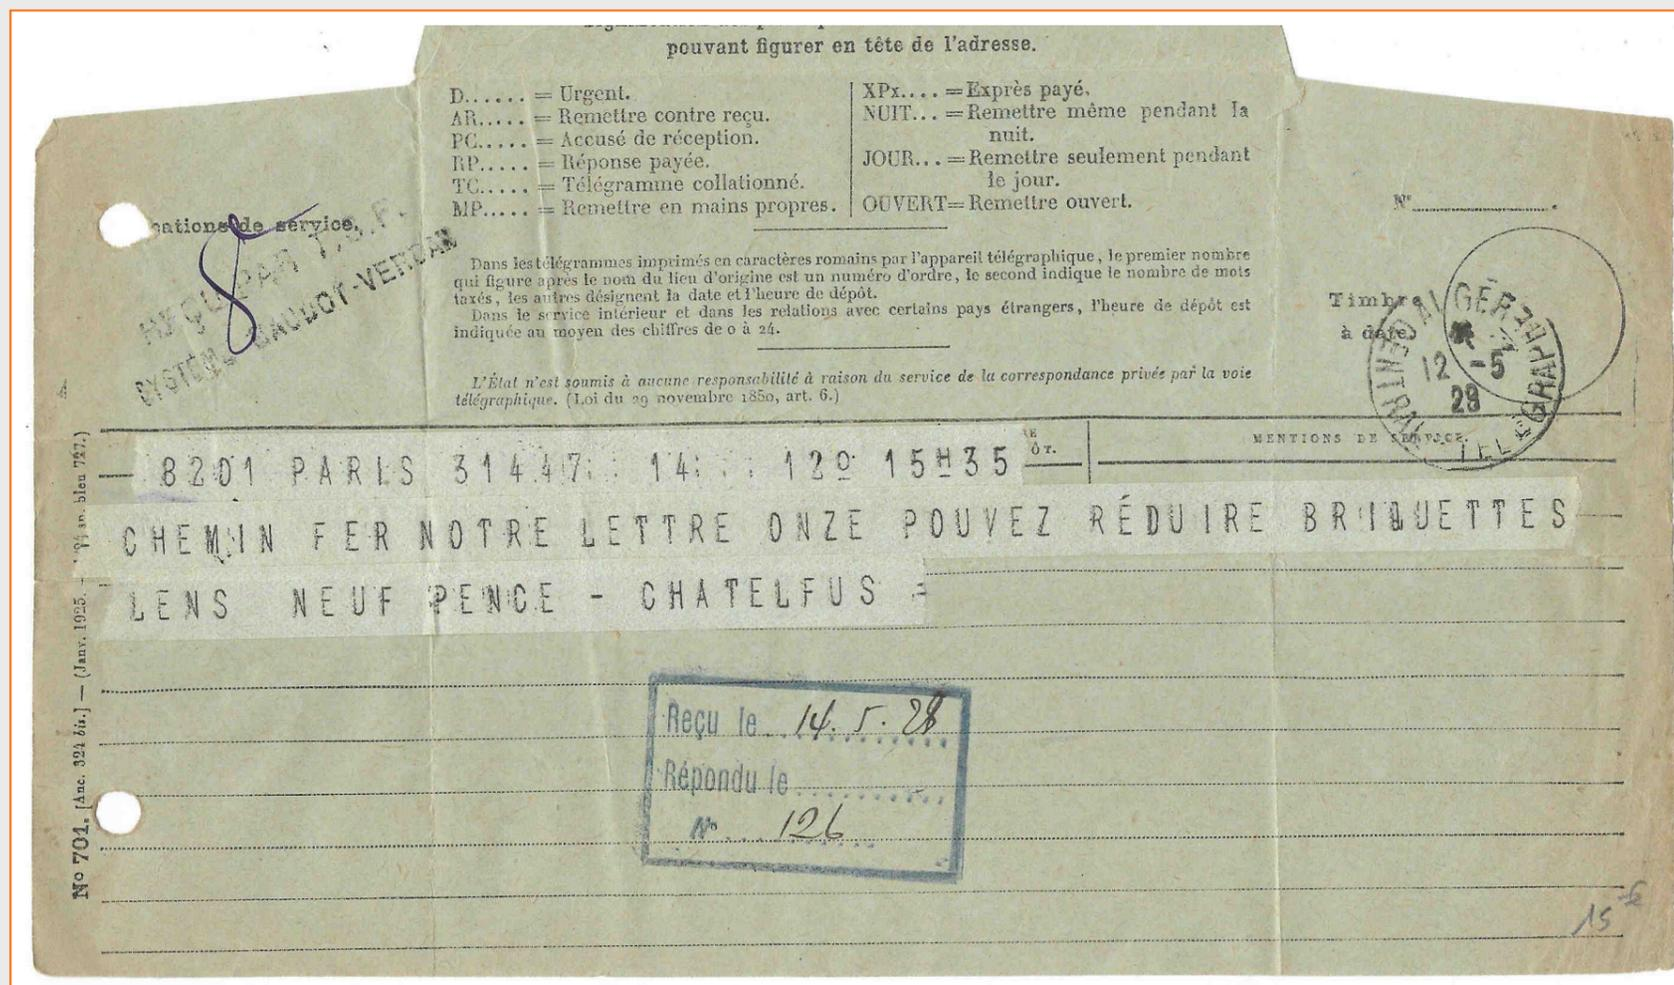 pouvant figurer en tête de l'adresse.
D...... = Urgent.
AR..... = Remettre contre reçu.
PC..... = Accusé de réception.
RP..... = Réponse payée.
TC..... = Télégramme collationné.
MP..... = Remettre en mains propres.
XPx.... = Exprès payé.
NUIT... = Remettre même pendant la
nuit.
JOUR... = Remettre seulement pendant
le jour.
OUVERT = Remettre ouvert.
cations de service.
N°
REÇU PAR T.S.F.
SYSTÈME BAUDOT-VERDAN
8
Dans les télégrammes imprimés en caractères romains par l'appareil télégraphique, le premier nombre
qui figure après le nom du lieu d'origine est un numéro d'ordre, le second indique le nombre de mots
taxés, les autres désignent la date et l'heure de dépôt.
Dans le service intérieur et dans les relations avec certains pays étrangers, l'heure de dépôt est
indiquée au moyen des chiffres de 0 à 24.
L'État n'est soumis à aucune responsabilité à raison du service de la correspondance privée par la voie
télégraphique. (Loi du 29 novembre 1850, art. 6.)
Timbre
à date.
ALGER
CENTRAL TELEGRAPHIQUE
12 -5
28
MENTIONS DE SERVICE.
8201 PARIS 31447 14 12º 15H35
CHEMIN FER NOTRE LETTRE ONZE POUVEZ RÉDUIRE BRIQUETTES
LENS NEUF PENCE - CHATELFUS =
Reçu le 14.5.28
Répondu le
N° 126
No 701. [Anc. 324 bis.] — (Janv. 1925.
bleu 727.)
15